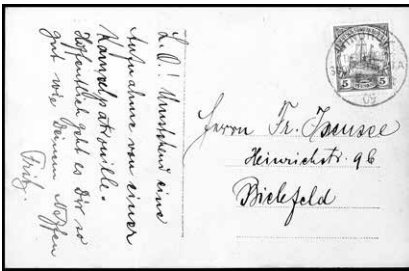 L.O! Umstehend eine
Aufnahme von einer
Kamelpatrouille.
Hoffentlich geht es Dir so
gut wie Deinem Neffen
Fritz.
Herrn Fr.
Heinrichstr. 9b
Bielefeld
5 5
09